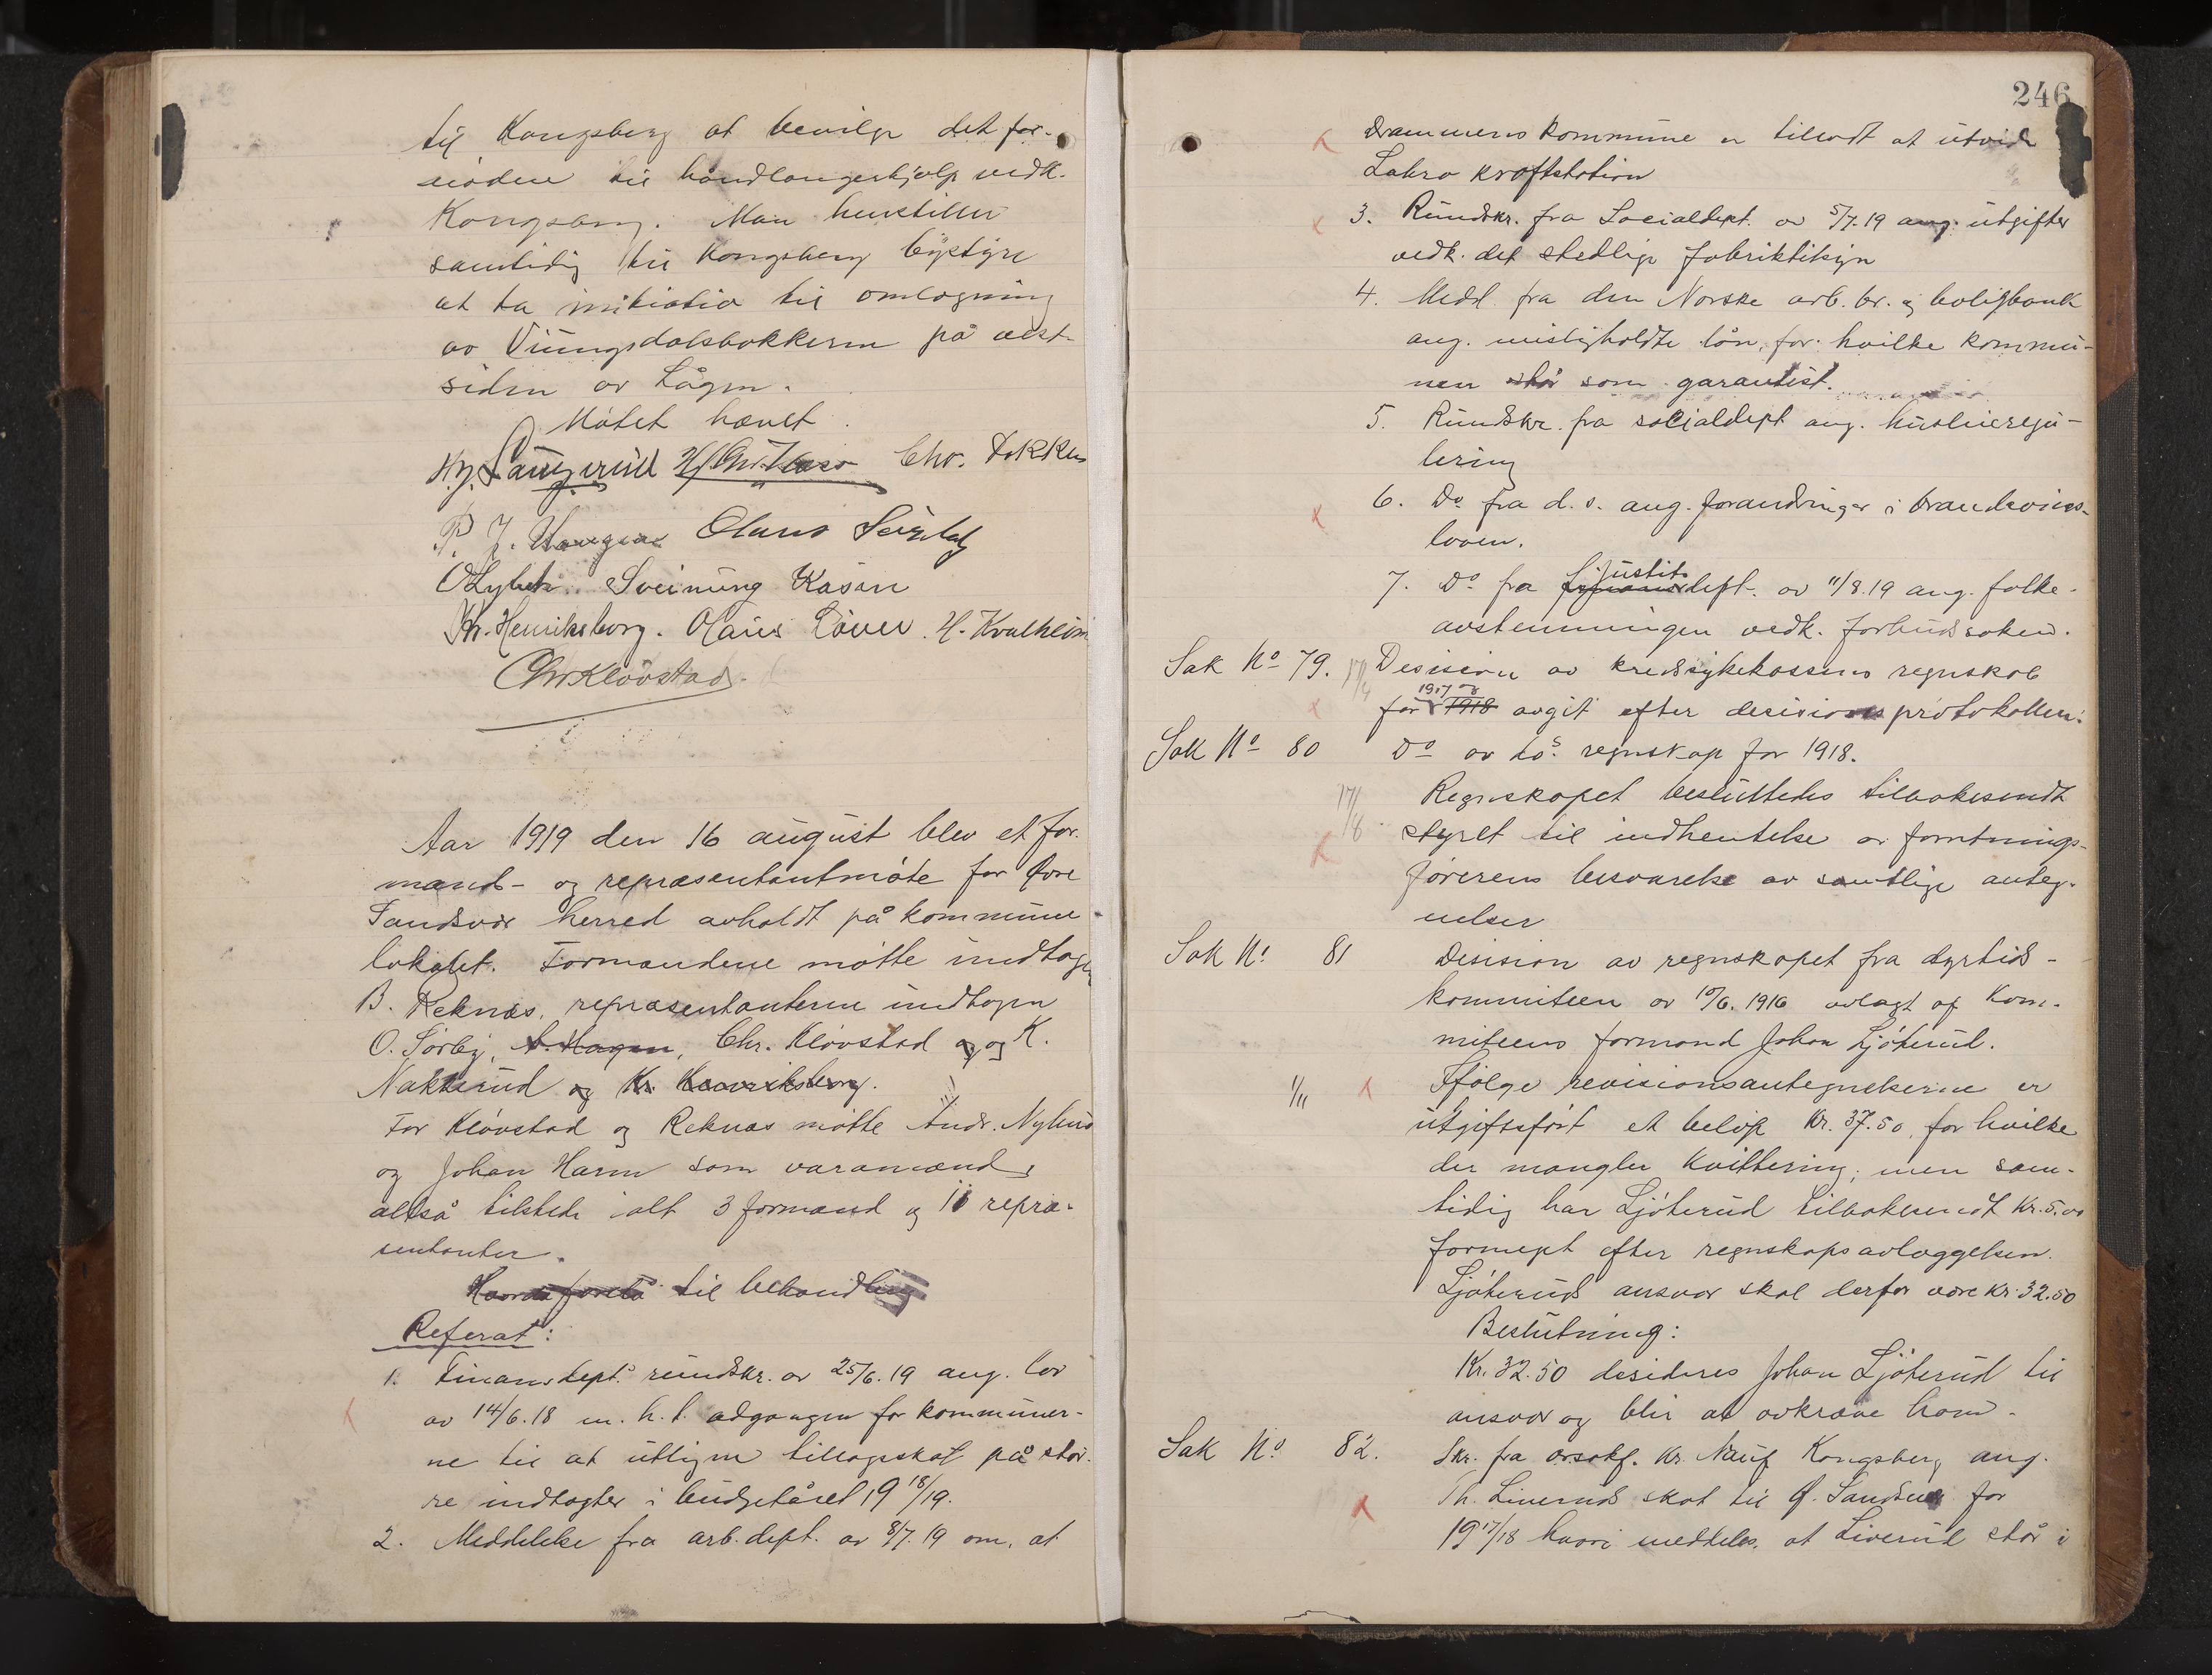 til Kongsberg at bevilge det for-
nödne til håndlangerhjælp vedk.
Kongsberg. Man henstiller
samtidig til Kongsberg bystyre
at ta initiativ til omlægning
av Vittingsdalsbakkerne på vest-
siden av Lågen.
Mötet hævet.
Hj. Chr. Dokken
P. J. Olaus
Sveinung Kåsen
Kr. Henriksborg. Olaus Löver H. Kvalheim
Chr Klövstad.
Aar 1919 den 16 august blev et for-
mand- og repræsentantmöte for Övre
Sandsvær herred avholdt på kommune
lokalet. Formændene mötte indtagen
B. Reknæs, repræsentanterne indtagen
O. Sörby, A. Hagen, Chr. Klövstad og og K.
Nakkerud og Kr. Henriksborg.
For Klövstad og Reknæs mötte Andr. Nylund
og Johan Harm som varamænd,
altså tilstede ialt 3 formænd og 11 repræ-
sentanter.
til behandling
Referat:
1. Finansdept.s rundskr. av 25/6.19 ang. lov
av 14/6.18 m. h. t. adgangen for kommuner-
ne til at utligne tillægsskat på stör-
re indtægter i budgetåret 19 18/19.
2. Meddelelse fra arb. dept. av 8/7.19 om, at
246
Drammens kommune er tillatt at utvide
Labro kraftstation
3. Rundskr. fra Socialdept. av 5/7.19 ang. utgifter
vedk. det stedlige fabriktilsyn
4. Medd. fra den Norske arb. br. og boligbank
ang. misligholdte lån, for hvilke kommu-
nen står som garantist.
5. Rundskr. fra socialdept ang. husleieregu-
lering
6. Do fra d. s. ang. forandringer i brændevins-
loven.
7. Do fra justits dept. av 11/8.19 ang. folke-
avstemningen vedk. forbudssaken.
Sak No 79. Desision av kredssykekassens regnskab
for 1917 og 1918 avgit efter desisionsprotokollen.
Sak No 80 Do av do.s regnskap for 1918.
17/8
Regnskapet besluttedes tilbakesendt
styret til indhentelse av forretnings-
förerens besvarelse av samtlige anteg-
nelser
Sak No. 81 Desision av regnskapet fra dyrtids-
kommiteen av 10/6.1916 avlagt af kom-
miteens formand Johan Ljöterud.
1/11 Ifölge revisionsantegnelserne er
utgiftsfört et belöp Kr. 37.50, for hvilke
der mangler kvittering, men sam-
tidig har Ljöterud tilbakesendt Kr. 5.00
formept efter regnskapsavlæggelsen.
Ljöteruds ansvar skal derfor være Kr. 32.50
Beslutning:
Kr. 32.50 desideres Johan Ljöterud til
ansvar og blir at avkræve ham.
Sak No. 82. Skr. fra orsakf. Kr. Kongsberg ang.
Th. Liveruds skat til Ö. Sandsvær for
19 17/18 hvori meddeles, at Liverud står i